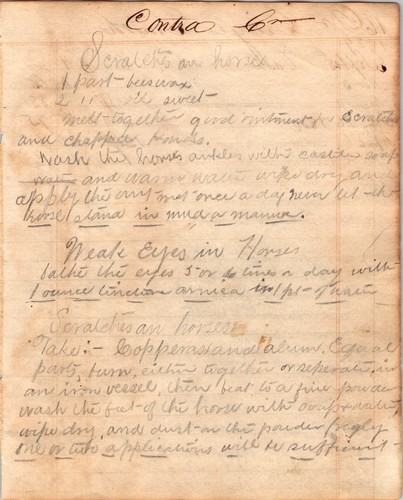 Contra Cr
Scratches on horses
1 part beeswax
2 " " sweet
melt together good ointment for Scratches
and chapped hands.
Wash the horses ankles with castile soap
and warm water wipe dry and
apply the oint ment once a day never let the
horse stand in mud a manure.
Weak Eyes in Horses
bathe the eyes 5 or 6 times a day with
1 ounce tincture arnica in 1 pt of water
Scratches on horses
Take:- Copperas and alum, Equal
parts, burn, either together or seperate, in
an iron vessel, then beat to a fine powder
wash the feet of the horse with soap & water,
wipe dry, and dust on the powder freely
one or two applications will be sufficient